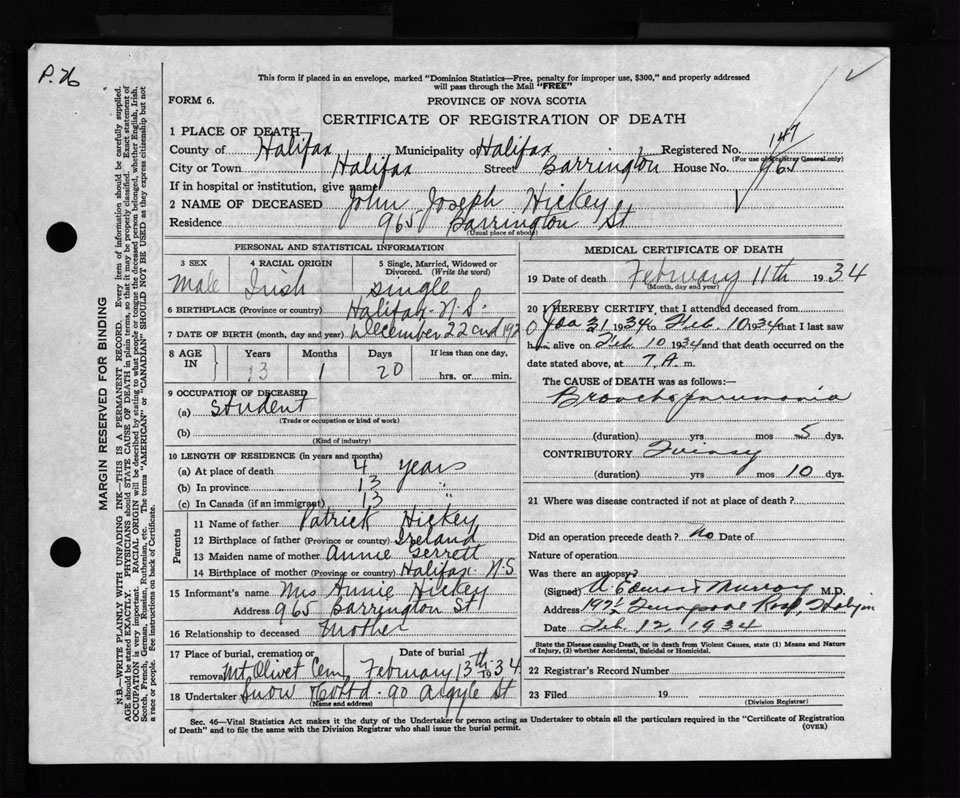 P. 26
This form if placed in an envelope, marked "Dominion Statistics—Free, penalty for improper use, $300," and properly addressed
will pass through the Mail "FREE"
FORM 6.
PROVINCE OF NOVA SCOTIA
CERTIFICATE OF REGISTRATION OF DEATH
1 PLACE OF DEATH
County of Halifax Municipality of Halifax Registered No. 147
(For use of Registrar General only)
City or Town Halifax Street Barrington House No. 965
If in hospital or institution, give name
2 NAME OF DECEASED John Joseph Hickey
Residence 965 Barrington St
(Usual place of abode)
PERSONAL AND STATISTICAL INFORMATION
3 SEX Male
4 RACIAL ORIGIN Irish
5 Single, Married, Widowed or Divorced. (Write the word) single
6 BIRTHPLACE (Province or country) Halifax N.S.
7 DATE OF BIRTH (month, day and year) December 22nd 192
8 AGE IN Years 13 Months 1 Days 20 If less than one day, hrs. or min.
9 OCCUPATION OF DECEASED
(a) Student
(Trade or occupation or kind of work)
(b)
(Kind of industry)
10 LENGTH OF RESIDENCE (in years and months)
(a) At place of death 4 years
(b) In province 13 "
(c) In Canada (if an immigrant) 13 "
Parents
11 Name of father Patrick Hickey
12 Birthplace of father (Province or country) Ireland
13 Maiden name of mother Annie Gerrett
14 Birthplace of mother (Province or country) Halifax N.S
15 Informant's name Mrs Annie Hickey
Address 965 Barrington St
16 Relationship to deceased Mother
17 Place of burial, cremation or removal Mt Olivet Cem
Date of burial February 13th 1934
18 Undertaker Snow & Co Ltd. 90 Argyle St
(Name and address)
MEDICAL CERTIFICATE OF DEATH
19 Date of death February 11th 1934
(Month, day and year)
20 I HEREBY CERTIFY, that I attended deceased from
Jan 31 1934 to Feb. 10 1934 that I last saw
him alive on Feb. 10 1934 and that death occurred on the
date stated above, at 7. A. m.
The CAUSE OF DEATH was as follows:—
Bronchopneumonia
(duration) yrs mos 5 dys.
CONTRIBUTORY Quinsy
(duration) yrs mos 10 dys.
21 Where was disease contracted if not at place of death?
Did an operation precede death? No Date of
Nature of operation
Was there an autopsy?
(Signed) Edward Murray M.D.
Address Halifax
Date Feb 12, 1934
State the Disease causing Death, or in death from Violent Causes, state (1) Means and Nature
of Injury, (2) whether Accidental, Suicidal or Homicidal.
22 Registrar's Record Number
23 Filed 19
(Division Registrar)
Sec. 46—Vital Statistics Act makes it the duty of the Undertaker or person acting as Undertaker to obtain all the particulars required in the "Certificate of Registration
of Death" and to file the same with the Division Registrar who shall issue the burial permit.
(OVER)
MARGIN RESERVED FOR BINDING
N.B.—WRITE PLAINLY WITH UNFADING INK—THIS IS A PERMANENT RECORD. Every item of information should be carefully supplied.
AGE should be stated EXACTLY. PHYSICIANS should STATE CAUSE OF DEATH in plain terms, so that it may be properly classified. Exact statement of
OCCUPATION is very important. RACIAL ORIGIN will be described by stating to what people or tongue the deceased person belonged, whether English, Irish,
Scotch, French, German, Russian, Ruthenian, etc. The terms "AMERICAN" or "CANADIAN" SHOULD NOT BE USED as they express citizenship but not
a race or people. See instructions on back of Certificate.